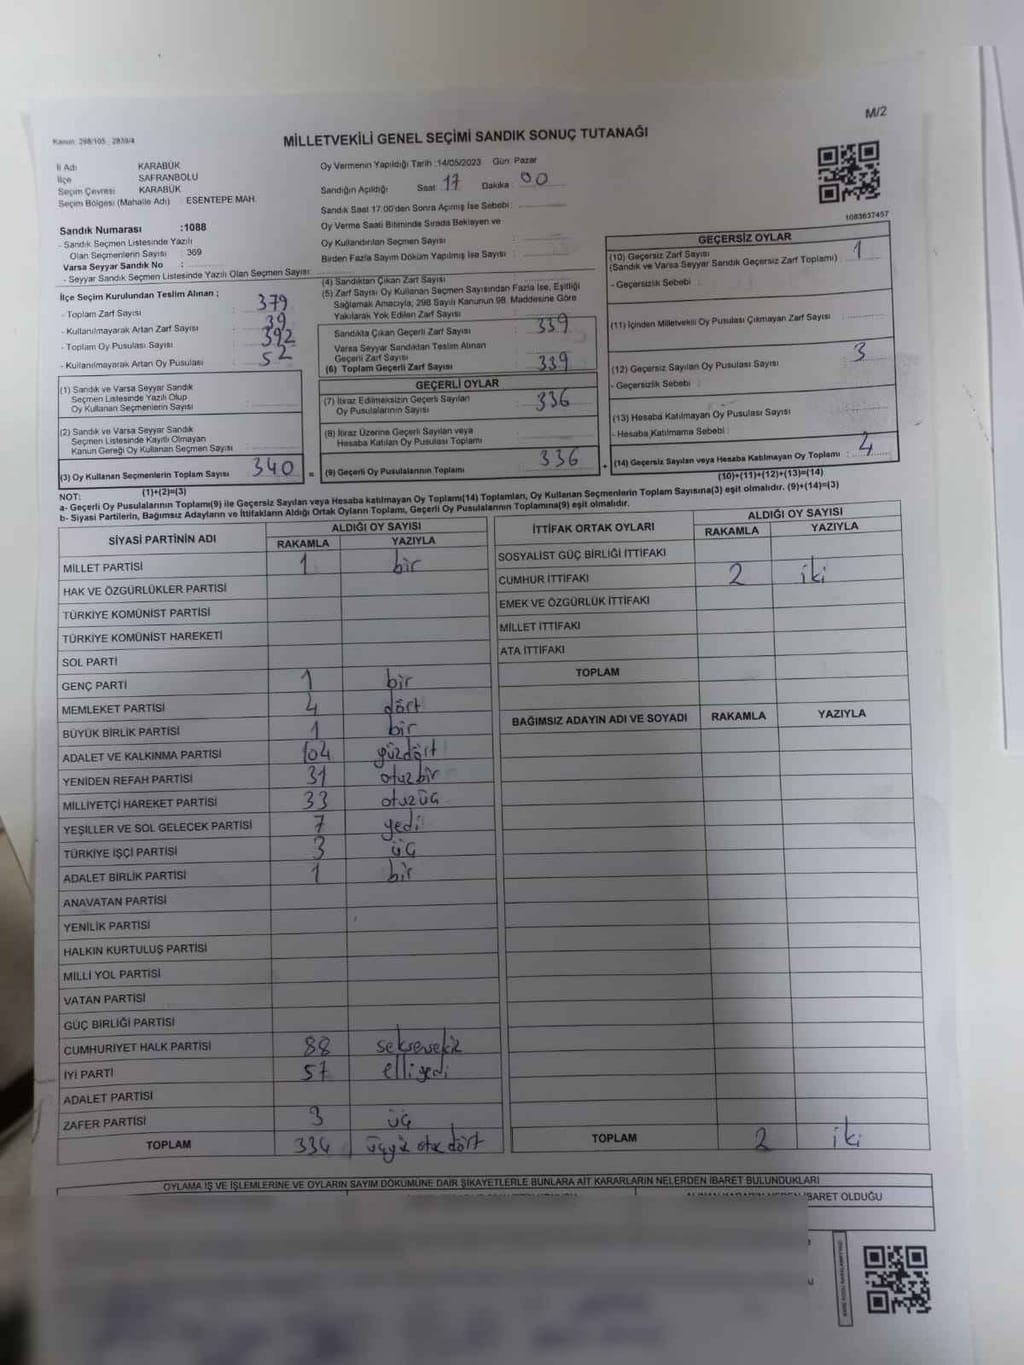 M/2
Kanun: 298/105 , 2839/4
MİLLETVEKİLİ GENEL SEÇİMİ SANDIK SONUÇ TUTANAĞI
İl Adı KARABÜK
İlçe SAFRANBOLU
Seçim Çevresi KARABÜK
Seçim Bölgesi (Mahalle Adı) ESENTEPE MAH.
Oy Vermenin Yapıldığı Tarih :14/05/2023 Gün: Pazar
Sandığın Açıldığı Saat: 17 Dakika: 00
Sandık Saat 17:00'den Sonra Açımış İse Sebebi :
Oy Verme Saati Bitiminde Sırada Bekleyen ve
Oy Kullandırılan Seçmen Sayısı :
Birden Fazla Sayım Döküm Yapılmış İse Sayısı :
1083637457
Sandık Numarası :1088
- Sandık Seçmen Listesinde Yazılı
Olan Seçmenlerin Sayısı : 369
Varsa Seyyar Sandık No :
- Seyyar Sandık Seçmen Listesinde Yazılı Olan Seçmen Sayısı:
İlçe Seçim Kurulundan Teslim Alınan ;
- Toplam Zarf Sayısı : 379
- Kullanılmayarak Artan Zarf Sayısı : 39
- Toplam Oy Pusulası Sayısı : 392
- Kullanılmayarak Artan Oy Pusulası : 52
(1) Sandık ve Varsa Seyyar Sandık
Seçmen Listesinde Yazılı Olup
Oy Kullanan Seçmenlerin Sayısı :
(2) Sandık ve Varsa Seyyar Sandık
Seçmen Listesinde Kayıtlı Olmayan
Kanun Gereği Oy Kullanan Seçmen Sayısı :
(3) Oy Kullanan Seçmenlerin Toplam Sayısı 340 =
(1)+(2)=(3)
(4) Sandıktan Çıkan Zarf Sayısı :
(5) Zarf Sayısı Oy Kullanan Seçmen Sayısından Fazla İse, Eşitliği
Sağlamak Amacıyla, 298 Sayılı Kanunun 98. Maddesine Göre
Yakılarak Yok Edilen Zarf Sayısı :
Sandıkta Çıkan Geçerli Zarf Sayısı : 339
Varsa Seyyar Sandıktan Teslim Alınan
Geçerli Zarf Sayısı :
(6) Toplam Geçerli Zarf Sayısı : 339
GEÇERLİ OYLAR
(7) İtiraz Edilmeksizin Geçerli Sayılan
Oy Pusulalarının Sayısı : 336
(8) İtiraz Üzerine Geçerli Sayılan veya
Hesaba Katılan Oy Pusulası Toplamı :
(9) Geçerli Oy Pusulalarının Toplamı : 336 +
GEÇERSİZ OYLAR
(10) Geçersiz Zarf Sayısı
(Sandık ve Varsa Seyyar Sandık Geçersiz Zarf Toplamı) : 1
- Geçersizlik Sebebi :
(11) İçinden Milletvekili Oy Pusulası Çıkmayan Zarf Sayısı :
(12) Geçersiz Sayılan Oy Pusulası Sayısı : 3
- Geçersizlik Sebebi :
(13) Hesaba Katılmayan Oy Pusulası Sayısı :
- Hesaba Katılmama Sebebi :
(14) Geçersiz Sayılan veya Hesaba Katılmayan Oy Toplamı : 4
(10)+(11)+(12)+(13)=(14)
NOT:
a- Geçerli Oy Pusulalarının Toplamı(9) ile Geçersiz Sayılan veya Hesaba katılmayan Oy Toplamı(14) Toplamları, Oy Kullanan Seçmenlerin Toplam Sayısına(3) eşit olmalıdır. (9)+(14)=(3)
b- Siyasi Partilerin, Bağımsız Adayların ve İttifakların Aldığı Ortak Oyların Toplamı, Geçerli Oy Pusulalarının Toplamına(9) eşit olmalıdır.
SİYASİ PARTİNİN ADI ALDIĞI OY SAYISI
RAKAMLA YAZIYLA
MİLLET PARTİSİ 1 bir
HAK VE ÖZGÜRLÜKLER PARTİSİ
TÜRKİYE KOMÜNİST PARTİSİ
TÜRKİYE KOMÜNİST HAREKETİ
SOL PARTİ
GENÇ PARTİ 1 bir
MEMLEKET PARTİSİ 4 dört
BÜYÜK BİRLİK PARTİSİ 1 bir
ADALET VE KALKINMA PARTİSİ 104 yüzdört
YENİDEN REFAH PARTİSİ 31 otuzbir
MİLLİYETÇİ HAREKET PARTİSİ 33 otuzüç
YEŞİLLER VE SOL GELECEK PARTİSİ 7 yedi
TÜRKİYE İŞÇİ PARTİSİ 3 üç
ADALET BİRLİK PARTİSİ 1 bir
ANAVATAN PARTİSİ
YENİLİK PARTİSİ
HALKIN KURTULUŞ PARTİSİ
MİLLİ YOL PARTİSİ
VATAN PARTİSİ
GÜÇ BİRLİĞİ PARTİSİ
CUMHURİYET HALK PARTİSİ 88 seksensekiz
İYİ PARTİ 57 elliyedi
ADALET PARTİSİ
ZAFER PARTİSİ 3 üç
TOPLAM 334 üçyüz otuz dört
İTTİFAK ORTAK OYLARI ALDIĞI OY SAYISI
RAKAMLA YAZIYLA
SOSYALİST GÜÇ BİRLİĞİ İTTİFAKI
CUMHUR İTTİFAKI 2 iki
EMEK VE ÖZGÜRLÜK İTTİFAKI
MİLLET İTTİFAKI
ATA İTTİFAKI
TOPLAM
BAĞIMSIZ ADAYIN ADI VE SOYADI RAKAMLA YAZIYLA
TOPLAM 2 iki
OYLAMA İŞ VE İŞLEMLERİNE VE OYLARIN SAYIM DÖKÜMÜNE DAİR ŞİKAYETLERLE BUNLARA AİT KARARLARIN NELERDEN İBARET BULUNDUKLARI
İBARET OLDUĞU